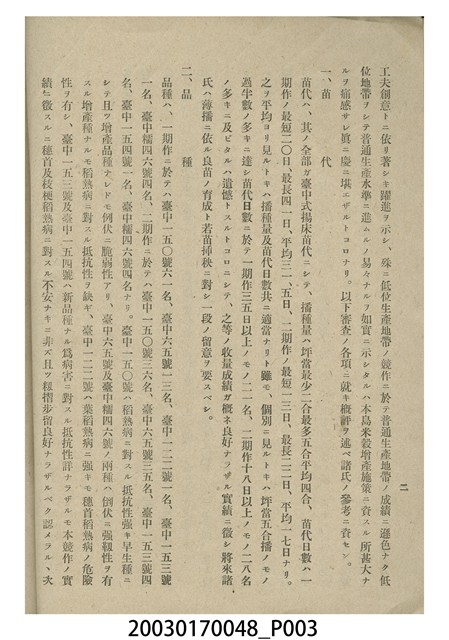 二
工夫創意トニ依リ著シキ躍進ヲ示シ、殊ニ低位生産地帶ノ競作ニ於テ普通生産地帶ノ成績ニ遜色ナク低
位地帶ヲシテ普通生産水準ニ進ムルノ易々ナルヲ如實ニ示シタルハ本島米穀增産施策ニ資スル所甚大ナ
ルヲ痛感サレ眞ニ慶ニ堪エザルトコロナリ。以下審査ノ各項ニ就キ概評ヲ述ベ諸氏ノ參考ニ資セン。
一、苗代
苗代ハ、其ノ全部ガ臺中式揚床苗代ニシテ、播種量ハ坪當最少二合最多五合平均四合、苗代日數ハ一
期作ノ最短二〇日、最長四一日、平均三一、五日、二期作ノ最短一三日、最長二二日、平均一七日ナリ。
之ヲ平均ヨリ見ルトキハ播種量及苗代日數共ニ適當ナリト雖モ、個別ニ見ルトキハ坪當五合播ノモノ
過半數ノ多キニ達シ苗代日數ニ於テ一期作三五日以上ノモノ二一名、二期作十八日以上ノモノ二八名
ノ多キニ及ビタルハ遺憾トスルトコロニシテ、之等ノ收量成績ガ概ネ良好ナラザル實績ニ徵シ將來諸
氏ハ薄播ニ依ル良苗ノ育成ト若苗挿秧ニ對シ一段ノ留意ヲ要スベシ。
二、品種
品種ハ、一期作ニ於テハ臺中一五〇號六一名、臺中六五號一三名、臺中一二二號一名、臺中一五三號
一名、臺中糯四六號四名、二期作ニ於テハ臺中一五〇號三六名、臺中六五號三五名、臺中一五三號四
名、臺中一五四號一名、臺中糯四六號四名ナリ。臺中一五〇號ハ稻熱病ニ對スル抵抗性强キ早生種ニ
シテ且ツ增産品種ナレドモ倒伏ニ脆弱性アリ、臺中六五號及臺中糯四六號ノ兩種ハ倒伏ニ强靱性ヲ有
スル增產種ナルモ稻熱病ニ對スル抵抗性ヲ缺ギ、臺中一二二號ハ葉稻熱病ニ强キモ穗首稻熱病ノ危險
性ヲ有シ、臺中一五三號及臺中一五四號ハ新品種ナル爲病害ニ對スル抵抗性詳ナラザルモ本競作ノ實
績ニ徵スルニ穗首及枝梗稻熱病ニ對スル不安ナキニ非ズ且ツ籾摺步留良好ナラザルベク認メラル、次
20030170048_P003